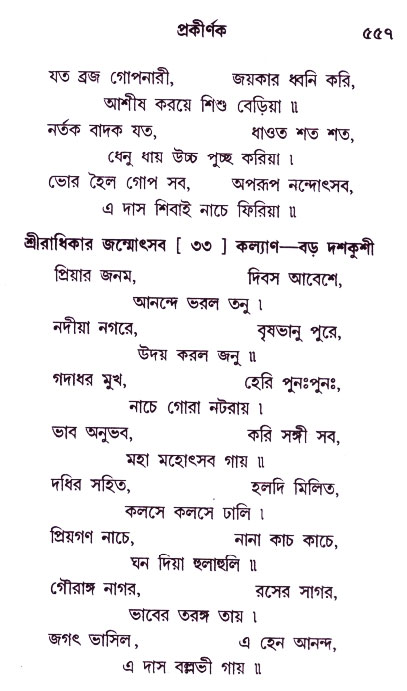 প্রকীর্ণক ৫৫৭
যত ব্রজ গোপনারী, জয়কার ধ্বনি করি,
আশীষ করয়ে শিশু বেড়িয়া ॥
নর্তক বাদক যত, ধাওত শত শত,
ধেনু ধায় উচ্চ পুচ্ছ করিয়া ।
ভোর হৈল গোপ সব, অপরূপ নন্দোৎসব,
এ দাস শিবাই নাচে ফিরিয়া ॥
শ্রীরাধিকার জন্মোৎসব [ ৩৩ ] কল্যাণ—বড় দশকুশী
প্রিয়ার জনম, দিবস আবেশে,
আনন্দে ভরল তনু ।
নদীয়া নগরে, বৃষভানু পুরে,
উদয় করল জনু ॥
গদাধর মুখ, হেরি পুনঃপুনঃ,
নাচে গোরা নটরায় ।
ভাব অনুভব, করি সঙ্গী সব,
মহা মহোৎসব গায় ॥
দধির সহিত, হলদি মিলিত,
কলসে কলসে ঢালি ।
প্রিয়গণ নাচে, নানা কাচ কাচে,
ঘন দিয়া হুলাহুলি ॥
গৌরাঙ্গ নাগর, রসের সাগর,
ভাবের তরঙ্গ তায় ।
জগৎ ভাসিল, এ হেন আনন্দ,
এ দাস বল্লভী গায় ॥